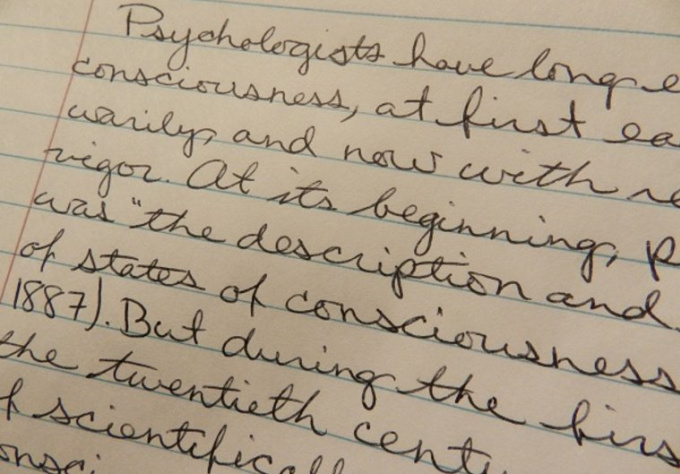 Psychologists have long e
consciousness, at first ea
warily, and now with re
rigor. At its beginning, p
was "the description and
of states of consciousness
1887). But during the firs
the twentieth centu
f scientifically
onsci